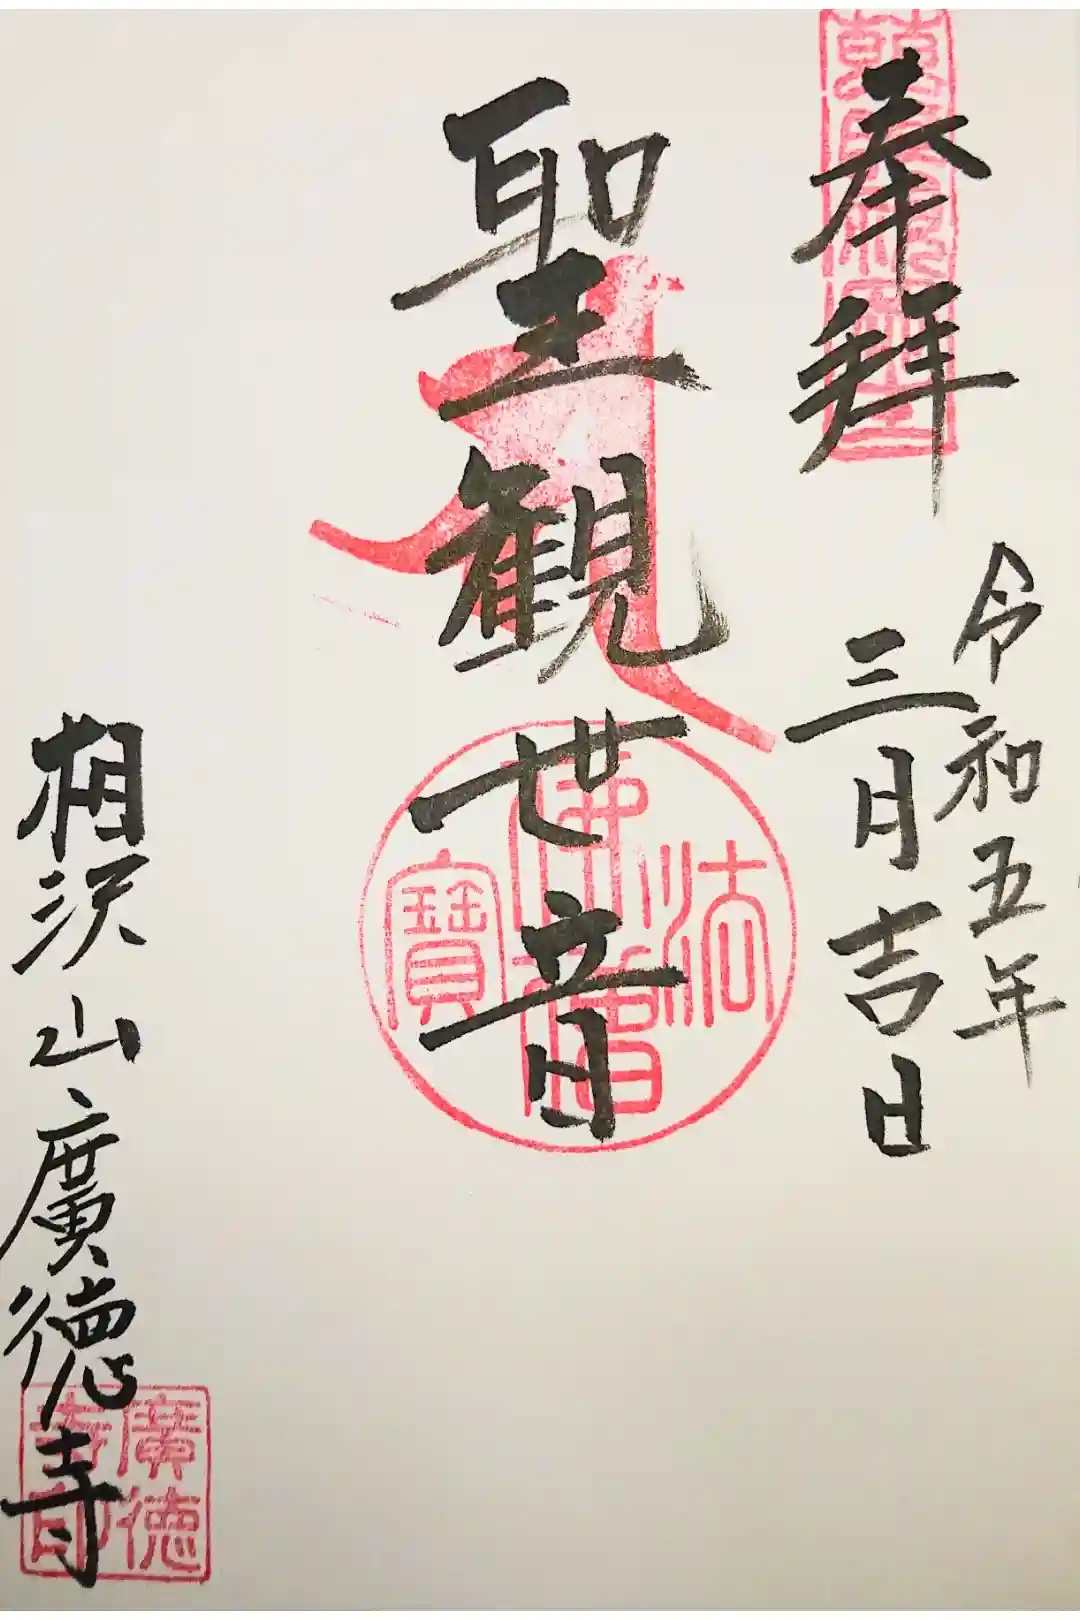 奉拝
令和五年
三月吉日
聖観世音
佛法僧寶
沢山廣徳寺
廣徳寺印